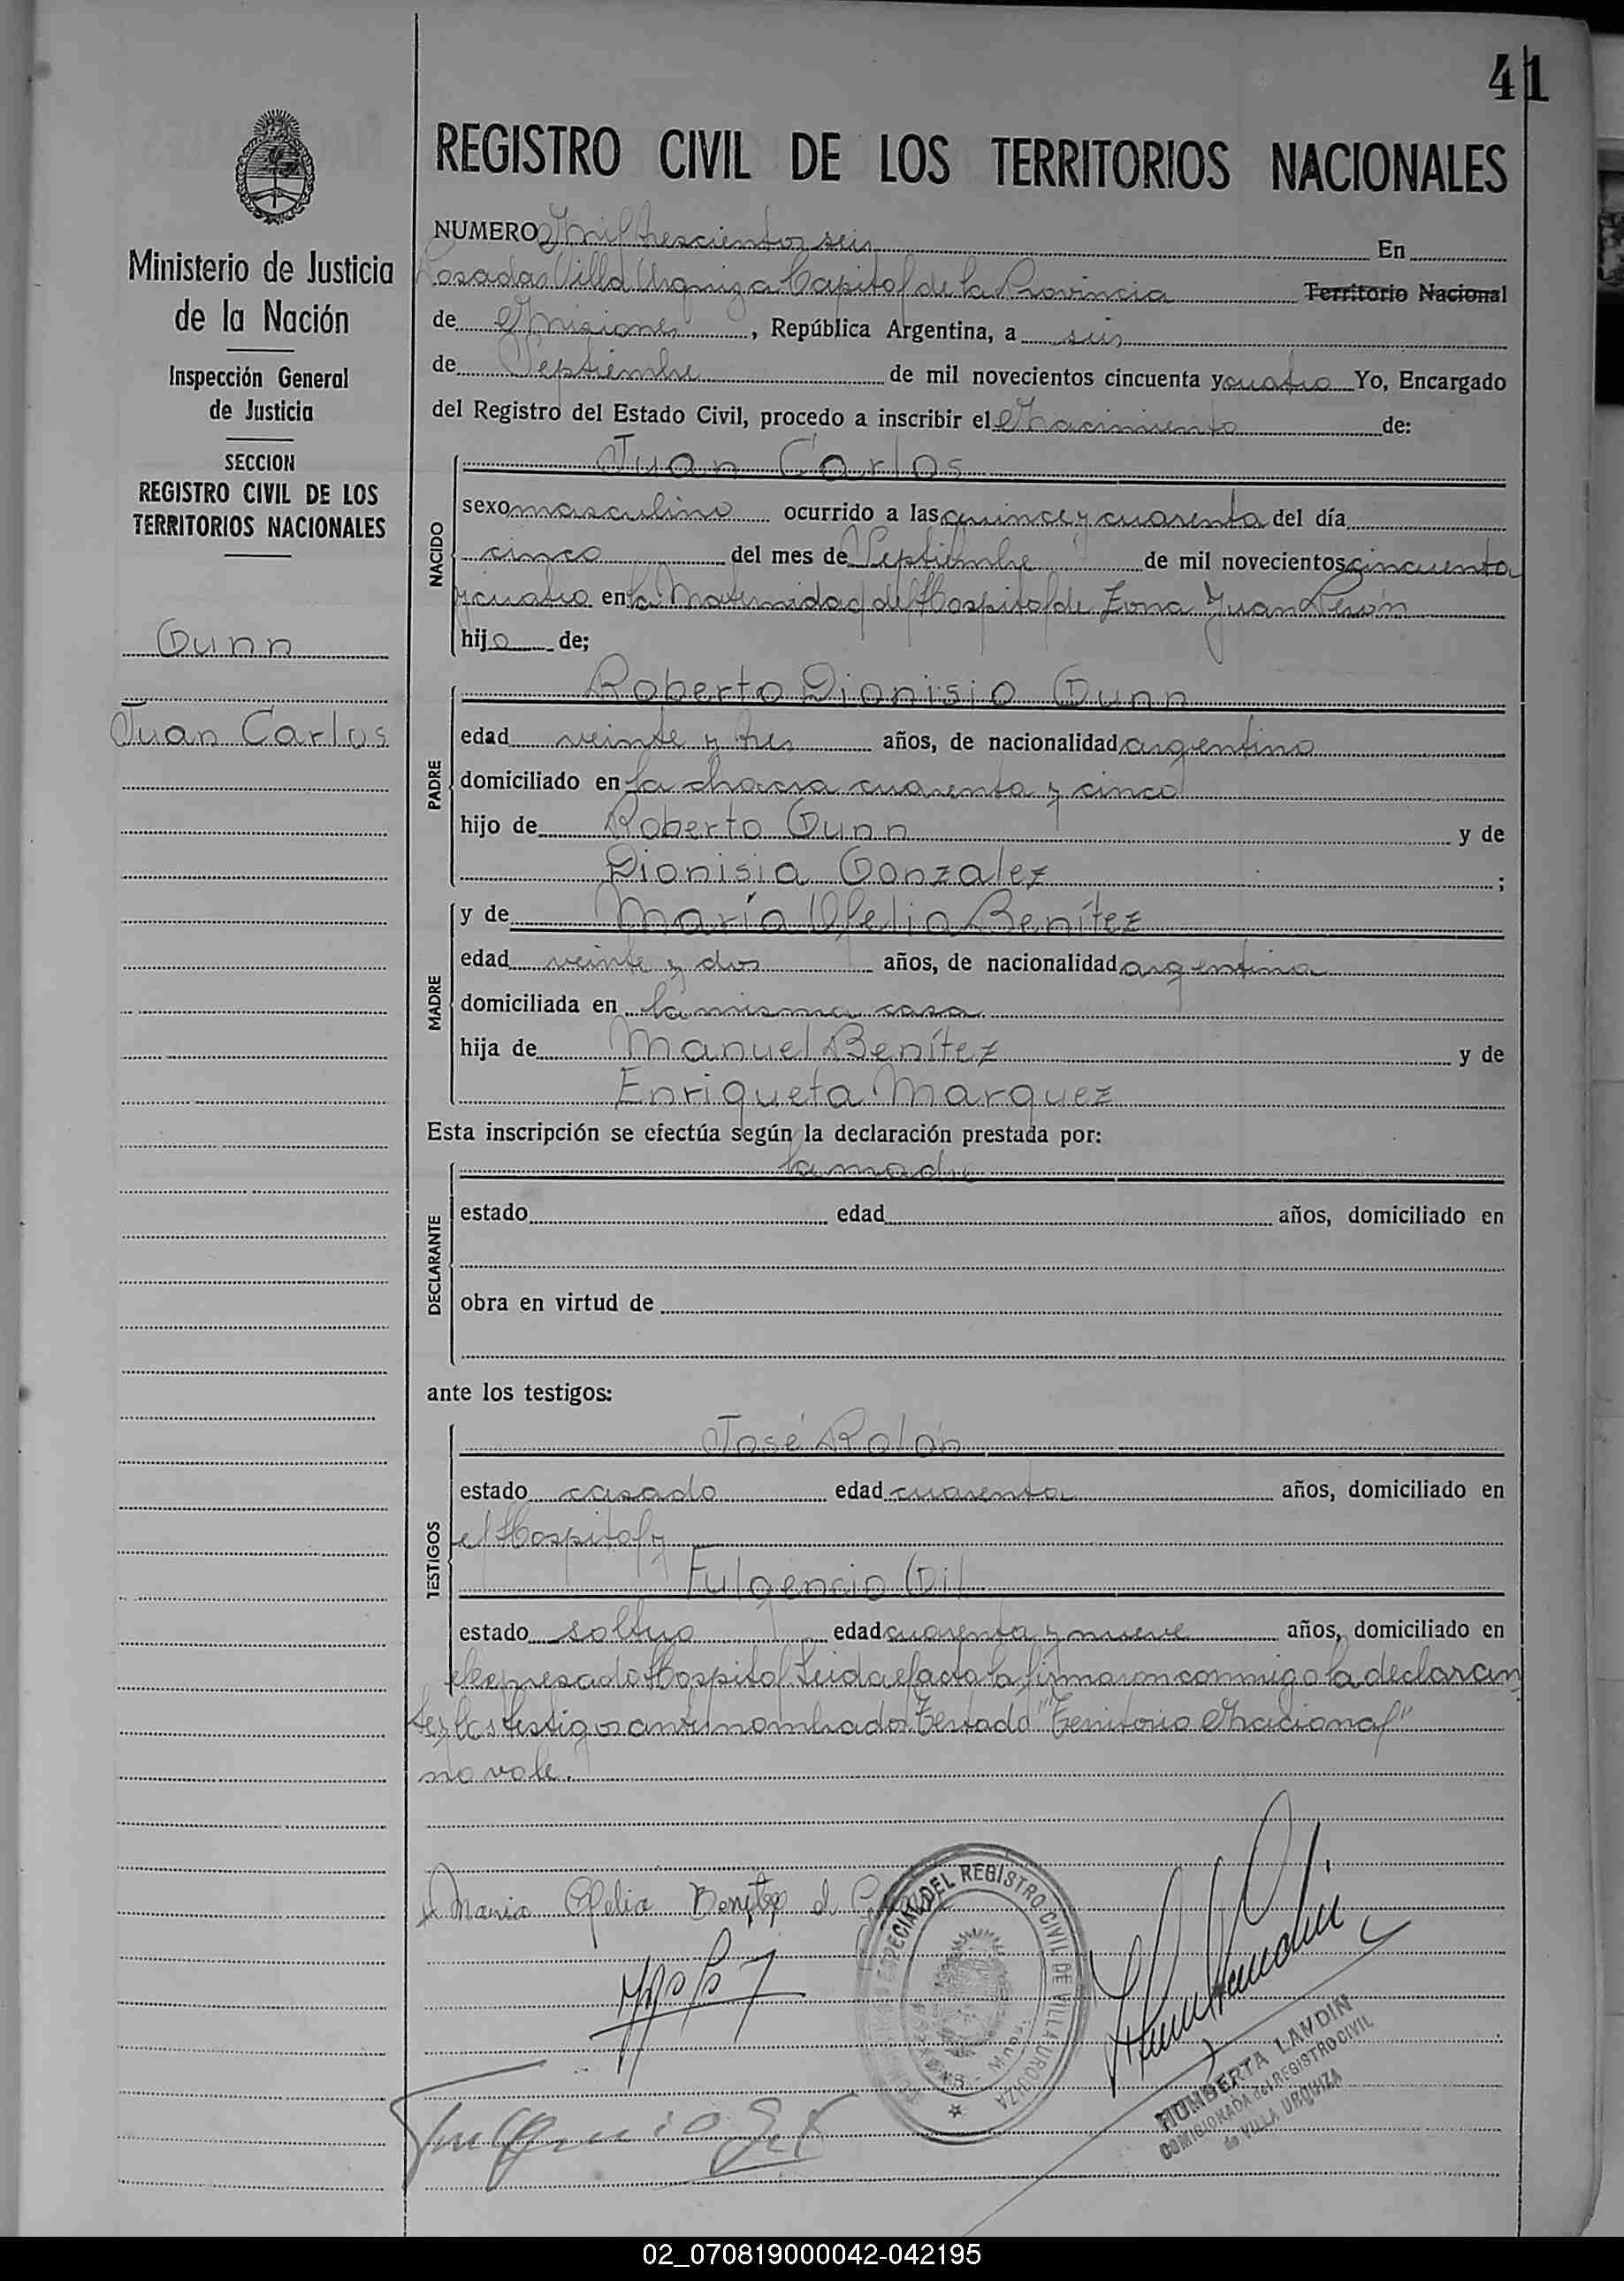 41
REGISTRO CIVIL DE LOS TERRITORIOS NACIONALES
Ministerio de Justicia
de la Nación
Inspección General
de Justicia
SECCION
REGISTRO CIVIL DE LOS
TERRITORIOS NACIONALES
Gunn
Juan Carlos
NUMERO Mil trescientos seis En
Posadas Villa Urquiza Capital de la Provincia Territorio Nacional
de Misiones, República Argentina, a seis
de Septiembre de mil novecientos cincuenta y cuatro Yo, Encargado
del Registro del Estado Civil, procedo a inscribir el Nacimiento de:
NACIDO
Juan Carlos
sexo masculino ocurrido a las quince y cuarenta del día
cinco del mes de Septiembre de mil novecientos cincuenta
y cuatro en la Maternidad del Hospital de Zona Juan Perón
hijo de;
PADRE
Roberto Dionisio Gunn
edad veinte y tres años, de nacionalidad argentino
domiciliado en la chacra cuarenta y cinco
hijo de Roberto Gunn y de
Dionisia Gonzalez ;
MADRE
y de María Ofelia Benítez
edad veinte y dos años, de nacionalidad argentina
domiciliada en la misma casa
hija de Manuel Benítez y de
Enriqueta Marquez
Esta inscripción se efectúa según la declaración prestada por:
DECLARANTE
la madre
estado edad años, domiciliado en
obra en virtud de
ante los testigos:
TESTIGOS
José Rolón
estado casado edad cuarenta años, domiciliado en
el Hospital y
Fulgencio Gil
estado soltero edad cuarenta y nueve años, domiciliado en
el expresado Hospital Leida el acta la firmaron conmigo la declaran
te y los testigos antes nombrados Testado "Territorio Nacional"
no vale.
Maria Ofelia Benitez d
ESPECIAL DEL REGISTRO CIVIL DE VILLA URQUIZA
HUMBERTA LANDIN
COMISIONADA del REGISTRO CIVIL
de VILLA URQUIZA
02_070819000042-042195